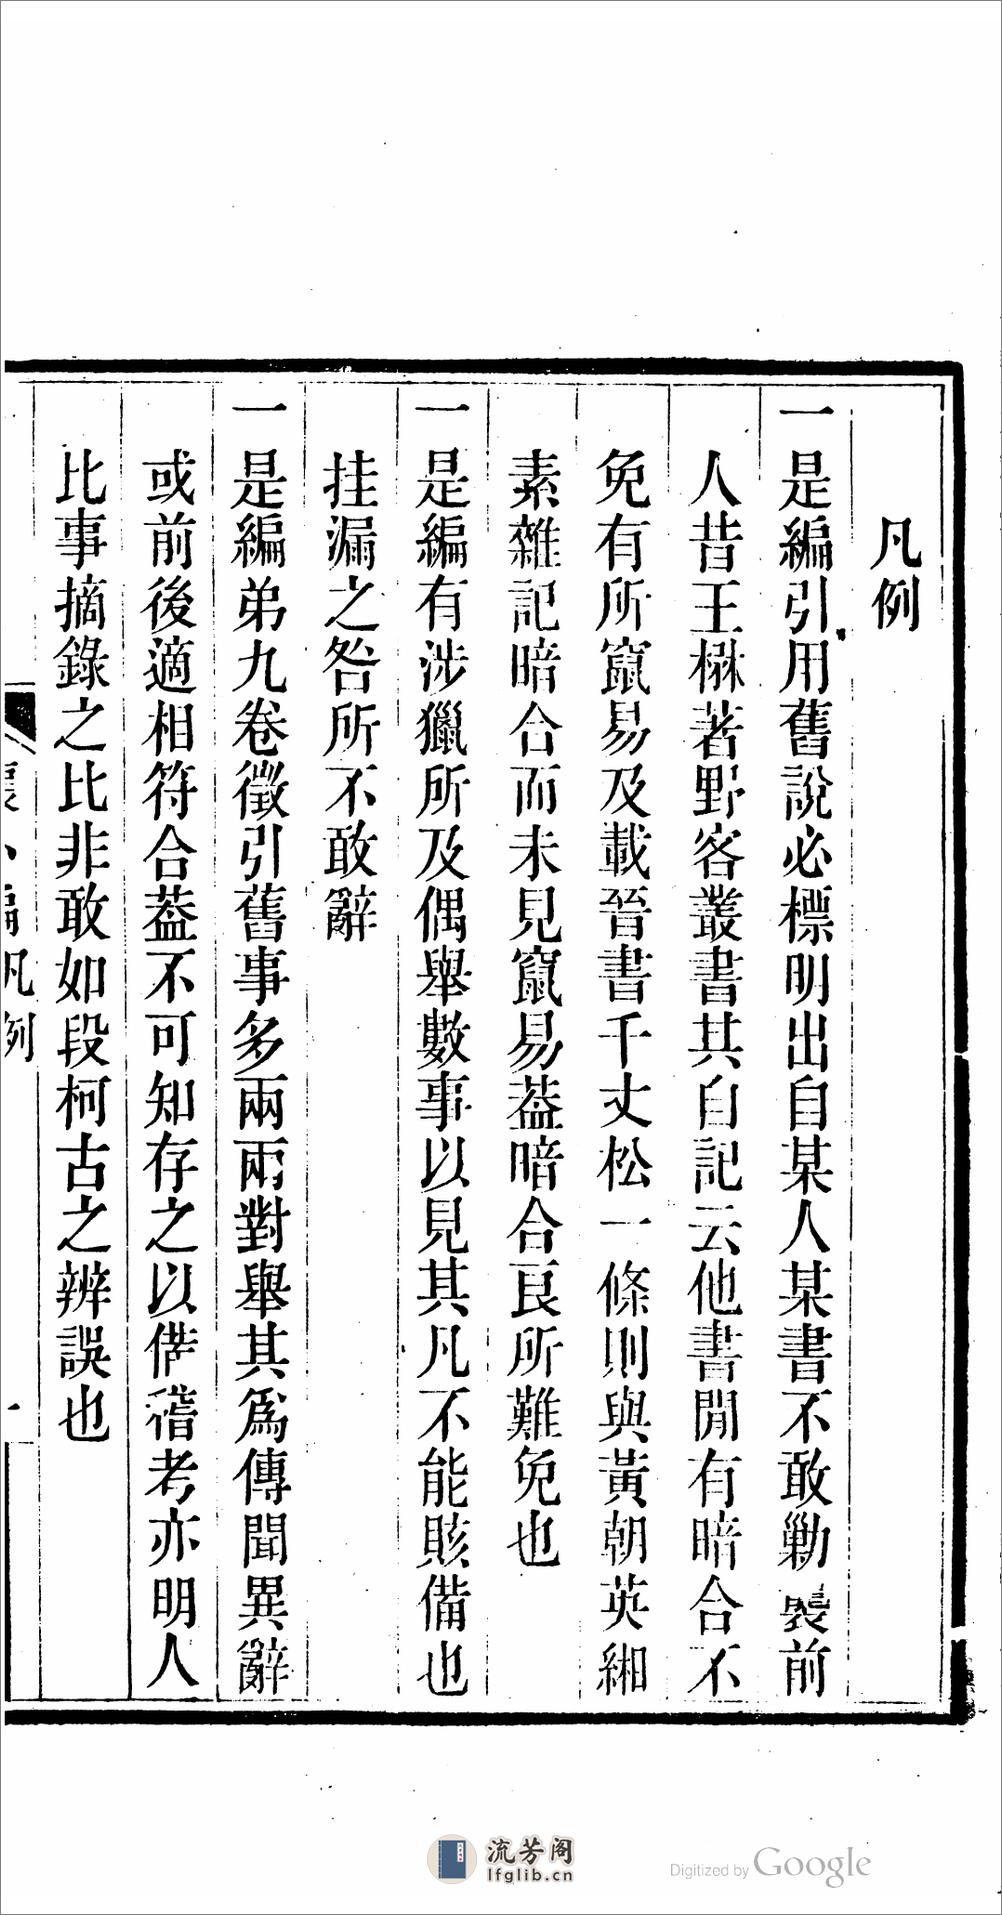 凡例
一是編引用舊說必標明出自某人某書不敢勦襲前
人昔王楙著野客叢書其自記云他書閒有暗合不
免有所竄易及載晉書千丈松一條則與黃朝英緗
素雜記暗合而未見竄易葢暗合良所難免也
一是編有涉獵所及偶舉數事以見其凡不能賅備也
挂漏之咎所不敢辭
一是編弟九卷徵引舊事多兩兩對舉其爲傳聞異辭
或前後適相符合葢不可知存之以俻稽考亦明人
比事摘錄之比非敢如段柯古之辨誤也
小編凡例
一
流芳阁
lfglib.cn
Digitized by Google